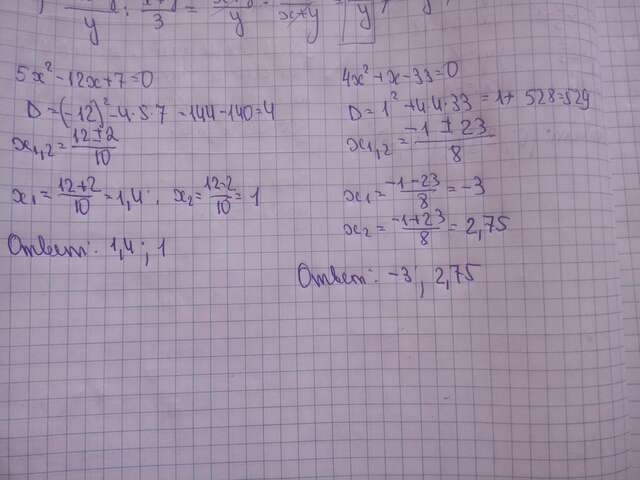 y : 3 = y x+y y
5x² - 12x + 7 = 0
D = (-12)² - 4 · 5 · 7 = 144 - 140 = 4
x₁,₂ = (12 ± 2)/10
x₁ = (12+2)/10 = 1,4; x₂ = (12-2)/10 = 1
Ответ: 1,4 ; 1
4x² + x - 33 = 0
D = 1² + 4 · 4 · 33 = 1 + 528 = 529
x₁,₂ = (-1 ± 23)/8
x₁ = (-1-23)/8 = -3
x₂ = (-1+23)/8 = 2,75
Ответ: -3 ; 2,75